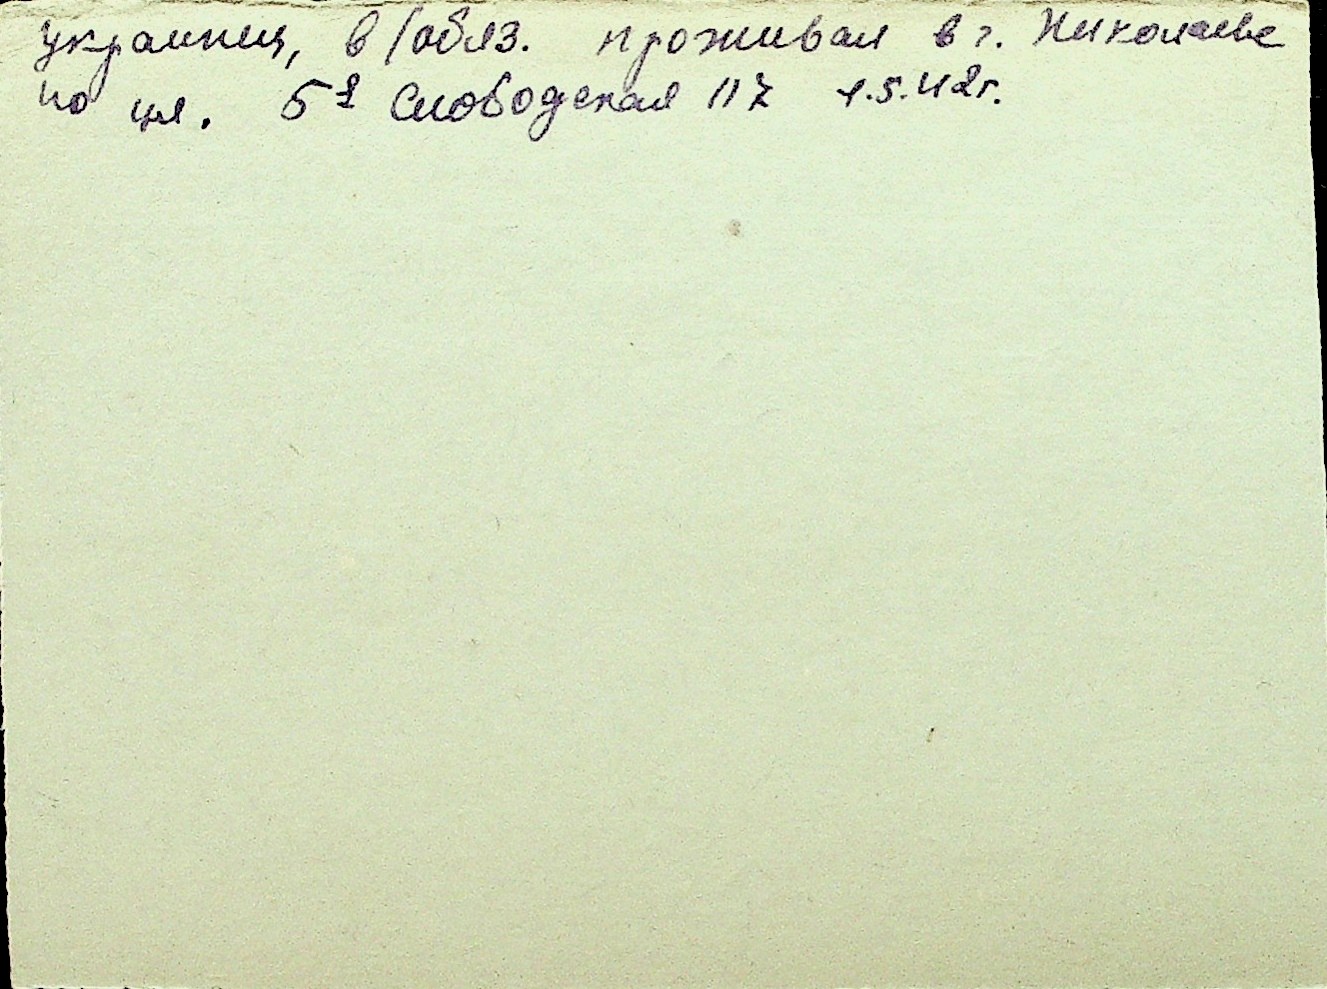 украинец, в/обяз. проживал в г. Николаеве
по ул. 5я Слободская 117 1.5.42г.